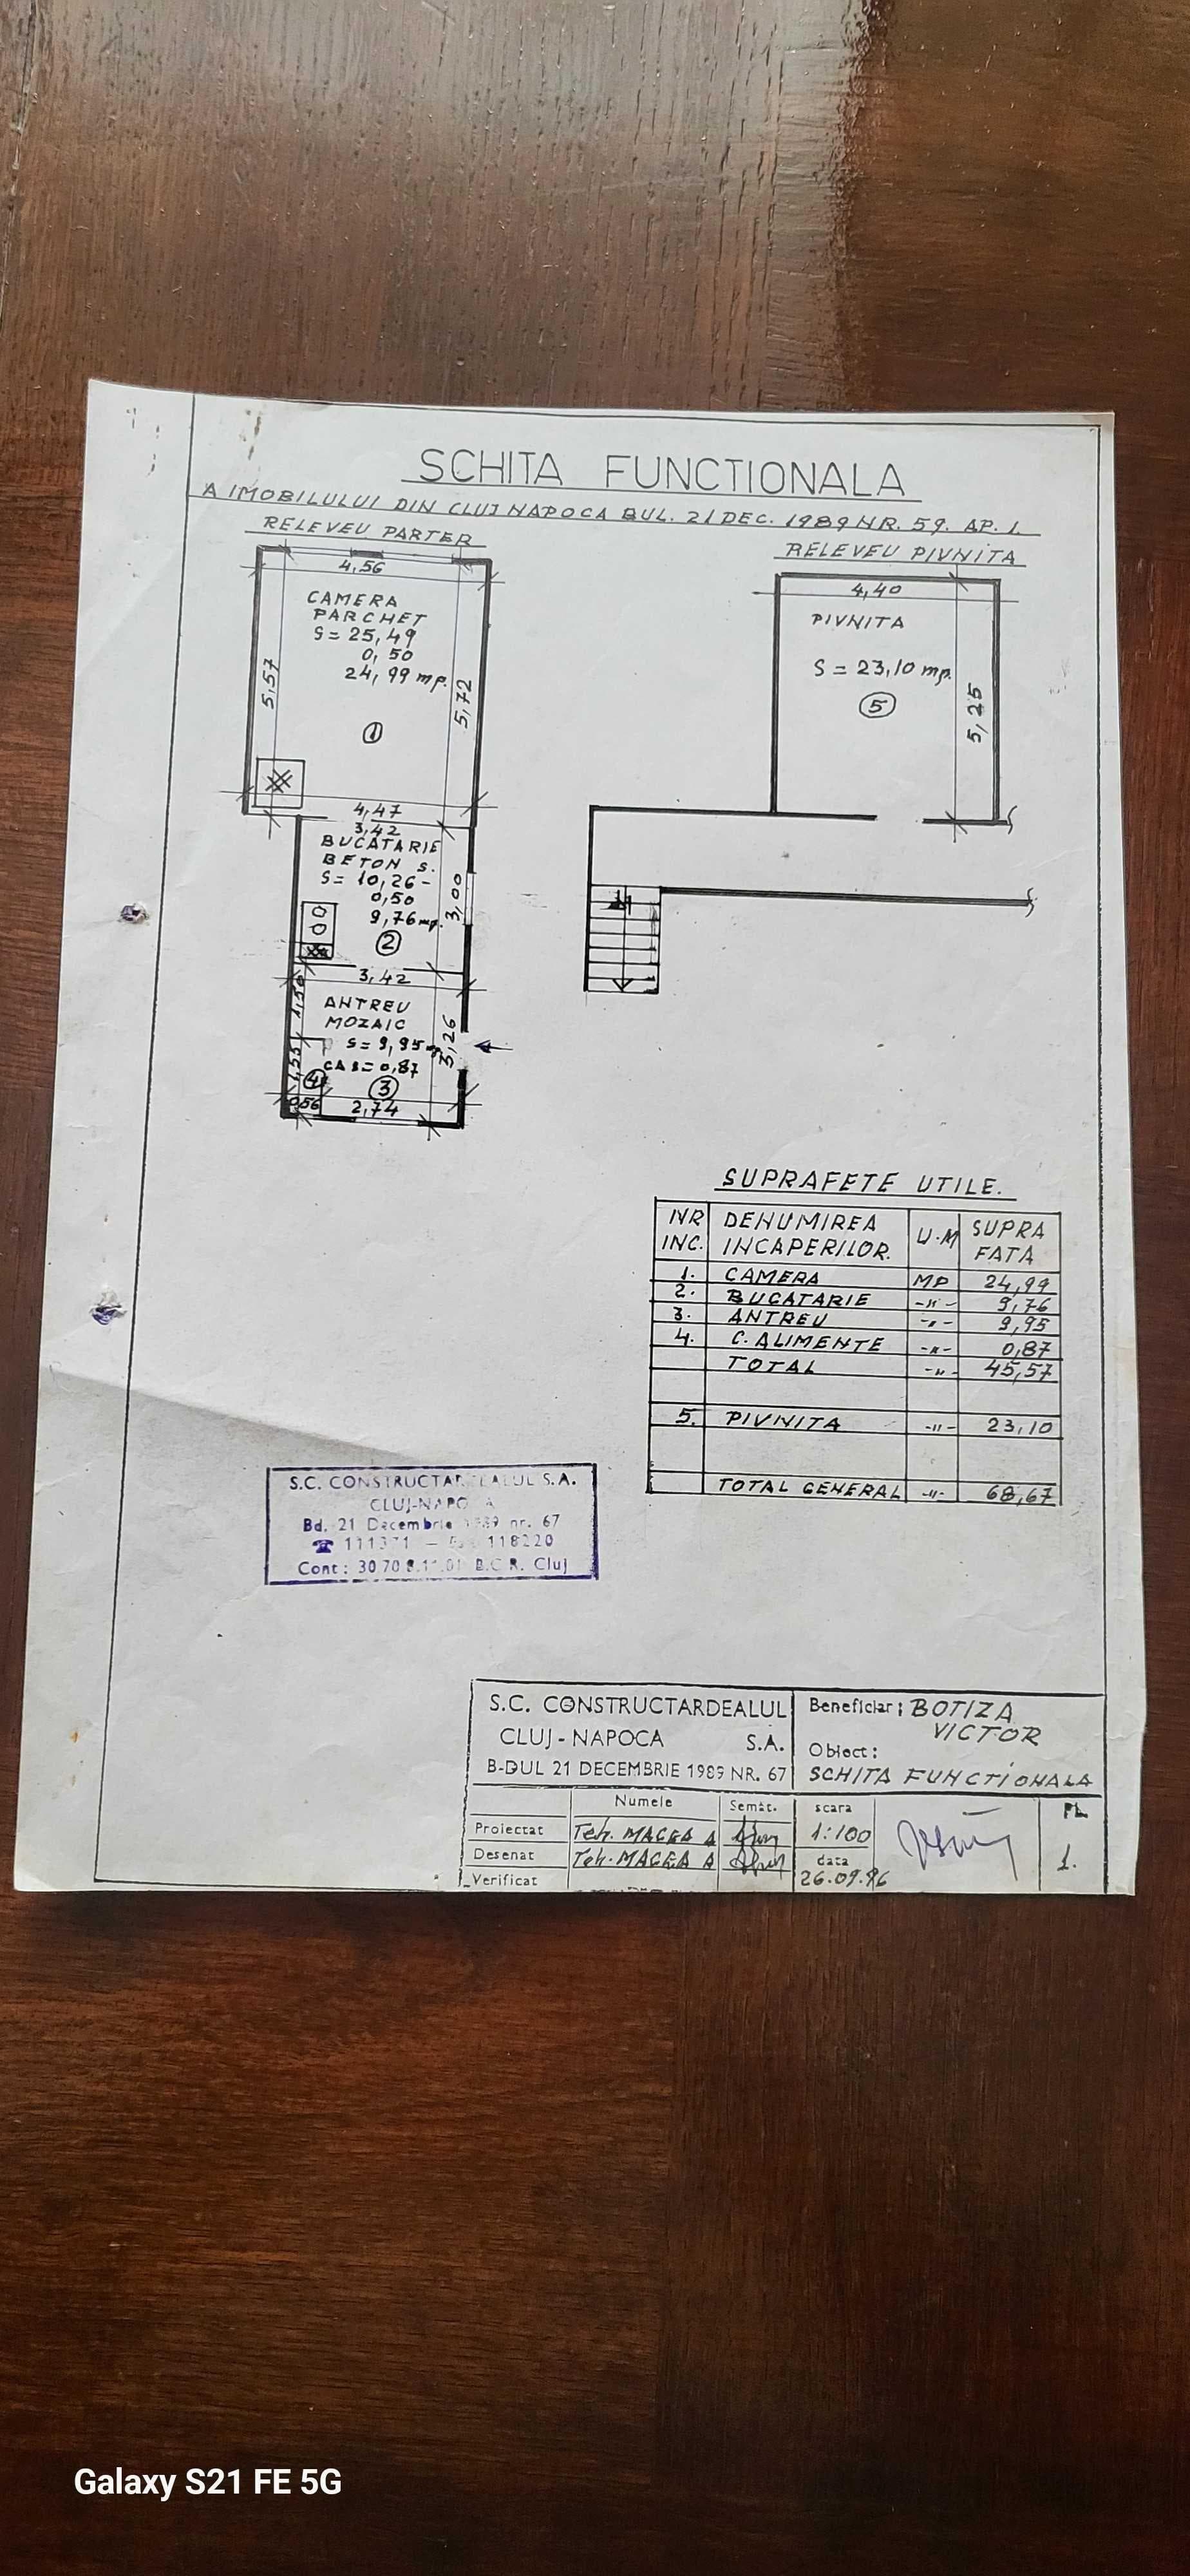 SCHITA FUNCTIONALA
A IMOBILULUI DIN CLUJ NAPOCA BUL. 21 DEC. 1989 NR. 59. AP. 1.
RELEVEU PARTER
4,56
CAMERA
PARCHET
S= 25,49
0,50
24,99 mp.
5,57
5,72
1
4,47
3,42
BUCATARIE
BETON S.
S= 10,26-
0,50
9,76 mp.
3,00
2
3,42
ANTREU
MOZAIC
S= 9,95
3,26
1,55
CA S= 0,87
4
3
0,56
2,74
RELEVEU PIVNITA
4,40
PIVNITA
S = 23,10 mp.
5
5,25
SUPRAFETE UTILE.
NR INC. DENUMIREA INCAPERILOR. U.M SUPRA FATA
1. CAMERA MP 24,99
2. BUCATARIE -"- 9,76
3. ANTREU -"- 9,95
4. C. ALIMENTE -"- 0,87
TOTAL -"- 45,57
5. PIVNITA -"- 23,10
TOTAL GENERAL -"- 68,67
S.C. CONSTRUCTARDEALUL S.A.
CLUJ-NAPOCA
Bd. 21 Decembrie 1989 nr. 67
☎ 111371 — 118220
Cont: B.C.R. Cluj
S.C. CONSTRUCTARDEALUL
CLUJ-NAPOCA S.A.
B-DUL 21 DECEMBRIE 1989 NR. 67
Beneficiar: BOTIZA
VICTOR
Obiect:
SCHITA FUNCTIONALA
Numele Semăt.
Proiectat Teh. MACEA A
Desenat Teh. MACEA A
Verificat
scara
1:100
data
26.09.96
PL.
1.
Galaxy S21 FE 5G